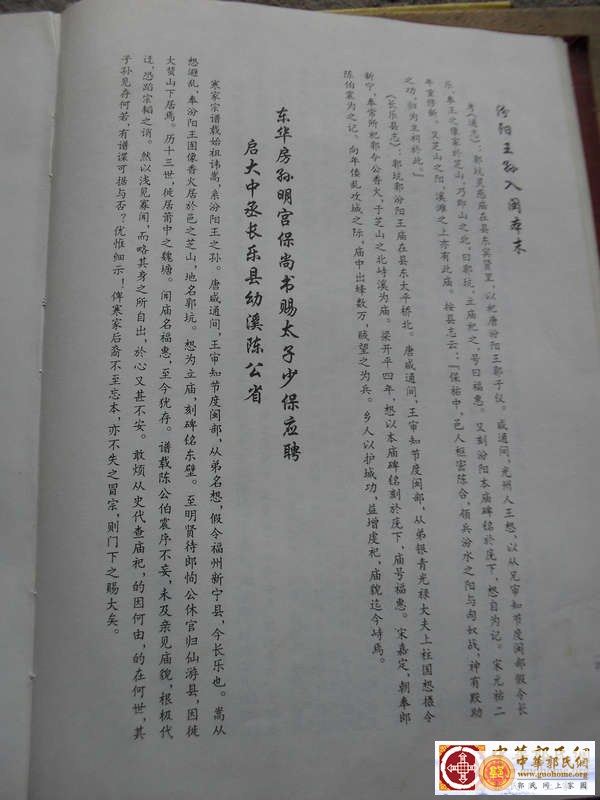 汾阳王孙入闽本末
考《通志》：郭坑灵感庙在县东崇贤里，以祀唐汾阳王郭子仪。咸通间，光州人王想，以从兄审知节度闽部假令长
乐，奉王之像家於芝山，乃即山之北，曰郭坑，立庙祀之，号曰福惠。又刻汾阳本庙碑铭於庑下，想自为记。宋元祐二
年重修新。又芝山之阳，溪滩之上亦有此庙。按县志云：『保祐中，邑人柩密陈合，领兵汾水之阳与匈奴战，神有默助
之功，归为主祠於此。』
《长乐县志》：郭坑郭汾阳王庙在县东太平桥北。唐咸通间，王审知节度闽部，从弟银青光禄大夫上柱国想摄令
新宁，奉常所祀郭令公香火，于芝山之北峙溪为庙。梁开平四年，想以本庙碑铭刻於庑下，庙号福惠。宋嘉定，朝奉郎
陈伯震为之记。向年倭乱攻城之际，庙中出蜂数万，贼望之为兵。乡人以护城功，益增虔祀，庙貌迄今峙焉。
东华房孙明宫保尚书赐太子少保应聘
启大中丞长乐县幼溪陈公省
寒家宗谱载始祖讳嵩，系汾阳王之孙。唐咸通间，王审知节度闽部，从弟名想，假令福州新宁县，今长乐也。嵩从
想避乱，奉汾阳王图像香火居於邑之芝山，地名郭坑。想为立庙，刻碑铭东壁。至明贤待郎恂公休官归仙游县，因徙
大蜚山下居焉。历十三世，徙居莆中之魏塘。闻庙名福惠，至今犹存。谱载陈公伯震序不妄，未及亲见庙貌，根极代
迁，恐蹈宗韬之诮。然以浅见寡闻，而略其身之所自出，於心又甚不安。敢烦从史代查庙祀，的因何由，的在何世，其
子孙见存何若，有谱谍可据与否？优惟细示！俾寒家后裔不至忘本，亦不失之冒宗，则门下之赐大矣。
中華郭氏網
中華郭氏網
www.guohome.org
郭氏网上家园